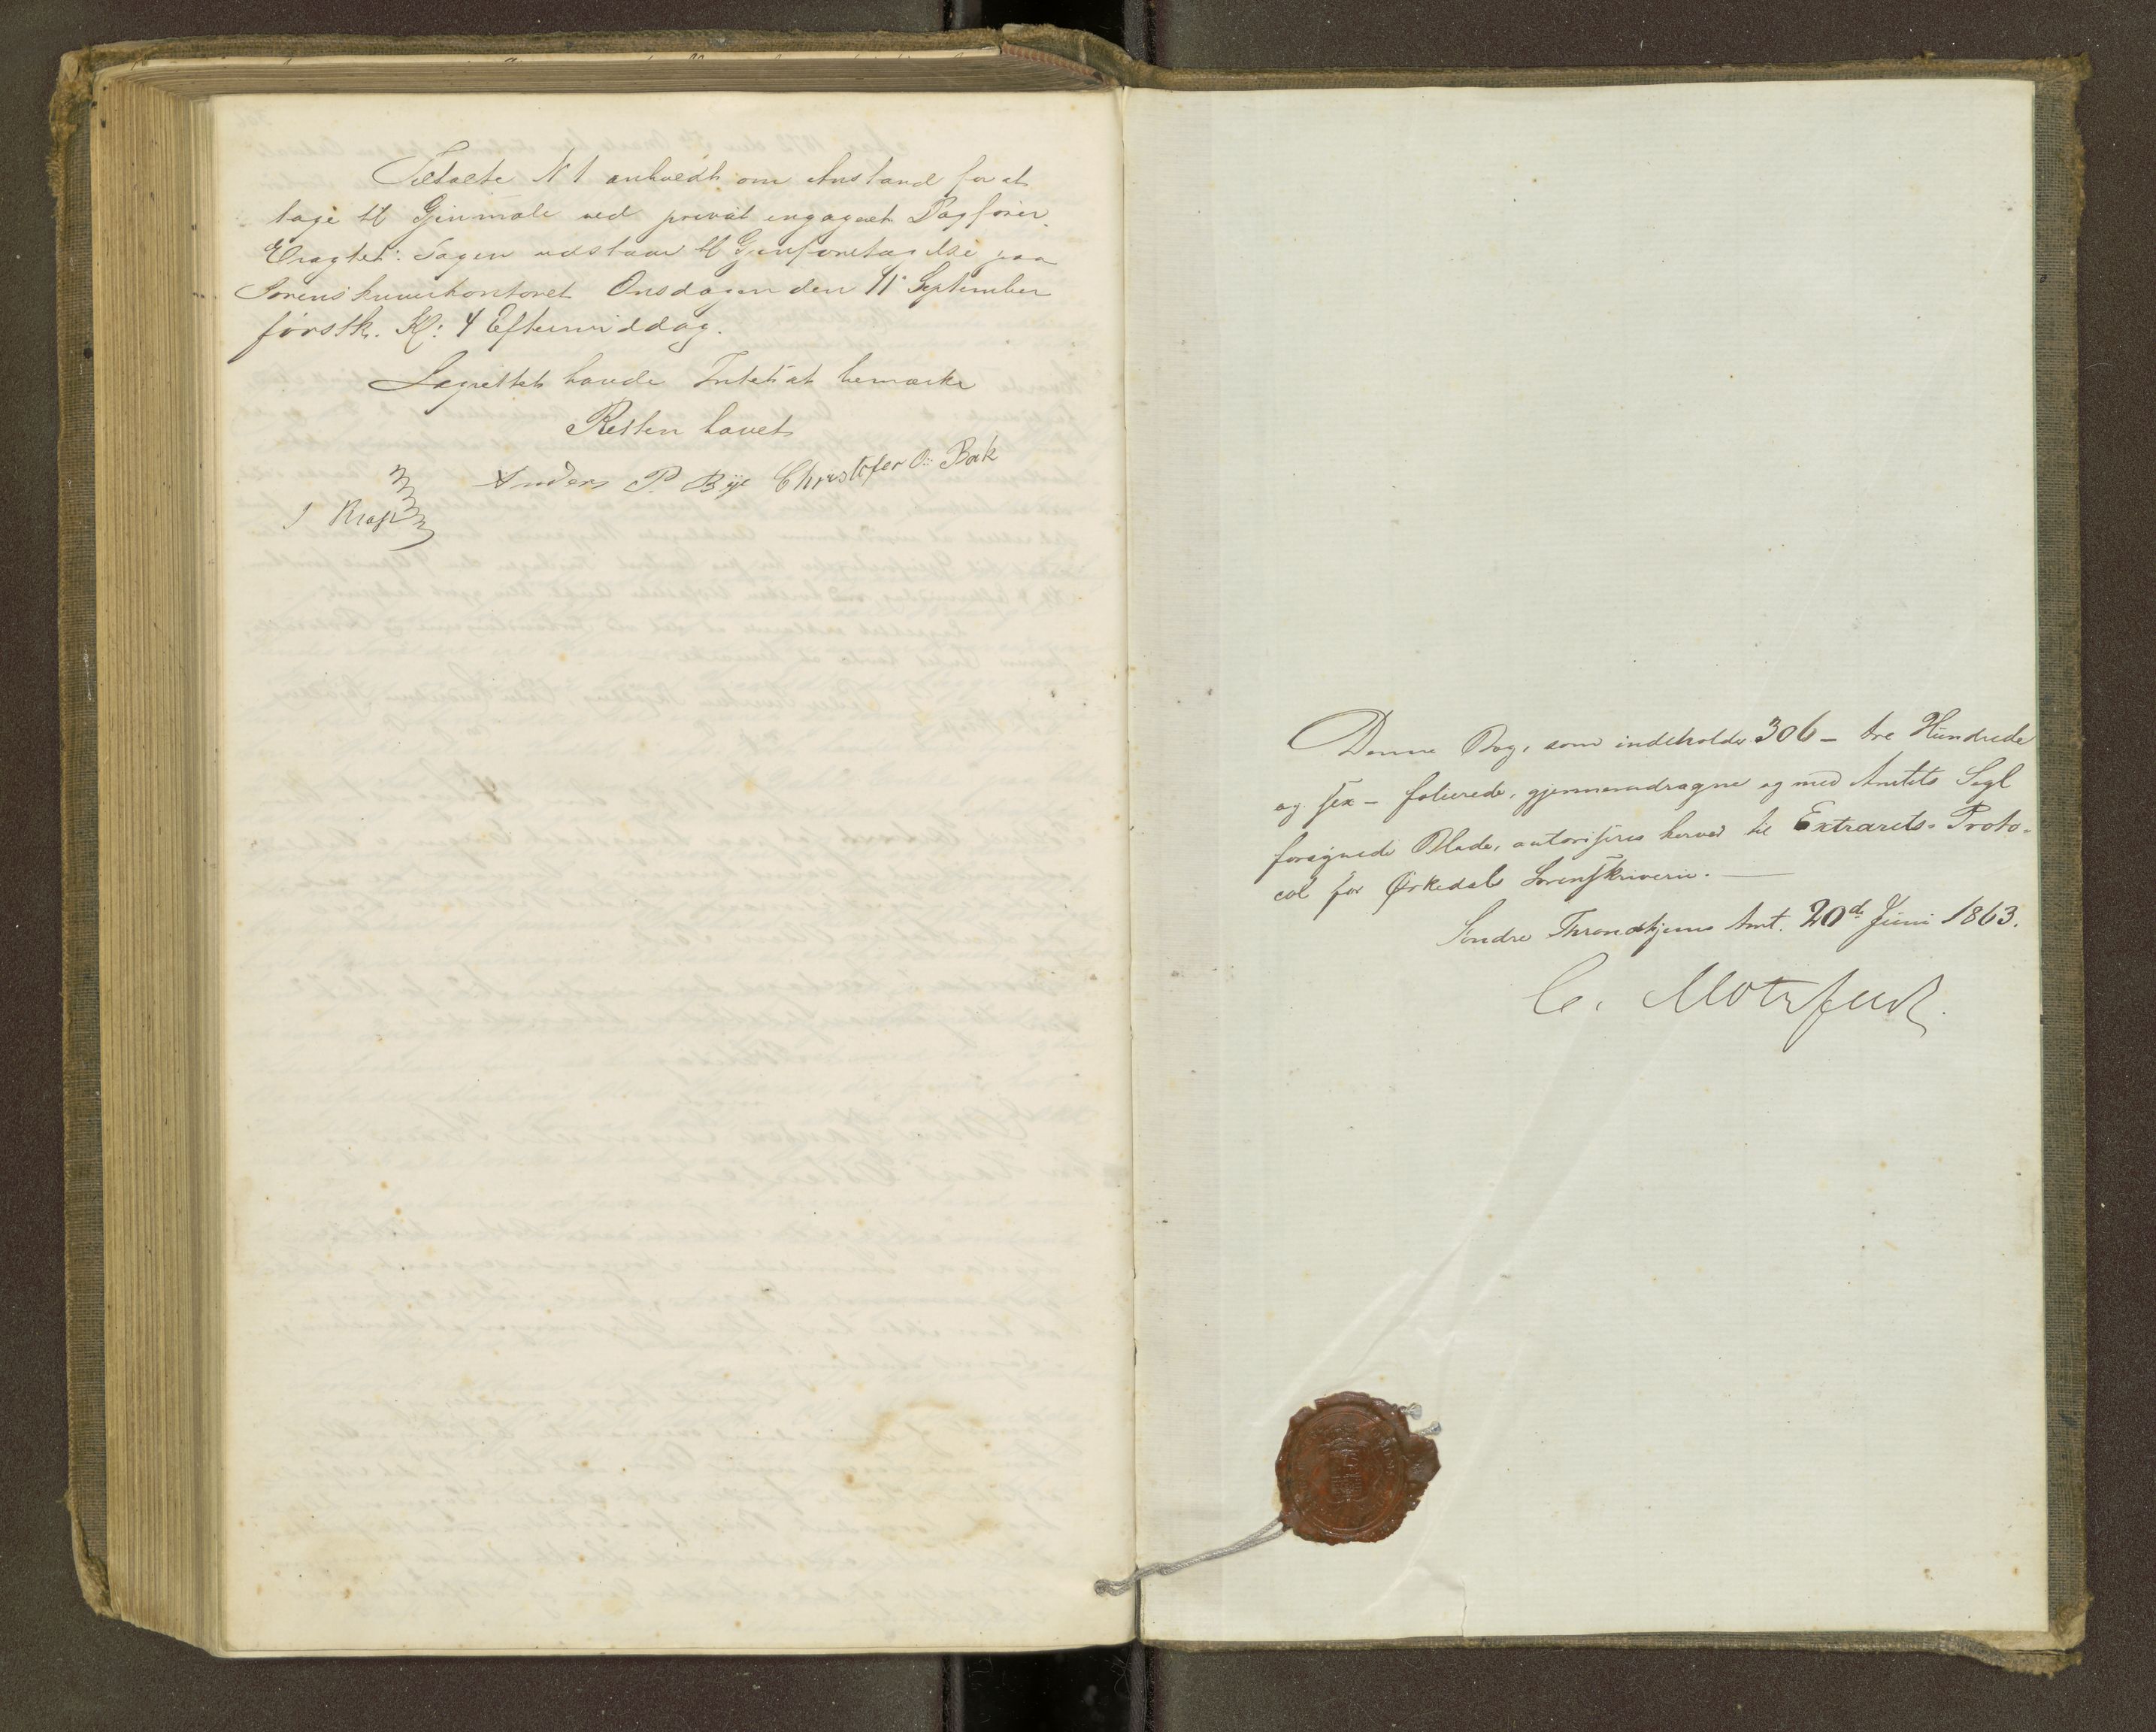 Tiltalte N 1 anholdt om Anstand for at
tage til Gjenmæle ved privat engageret Sagfører.
Eragtet: Sagen udstaar til Gjenforetagelse paa
Sorenskriverkontoret Onsdagen den 11 September
førstk. Kl: 4 Eftermiddag.
Lagrettet havde Intet at bemærke
Retten hævet
Anders P. Bye Christofer O: Bak
J Krag
Denne Bog, som indeholder 306 - tre Hundrede
og sex - folierede, gjennemdragne og med Amtets Segl
forsynede Blade, autoriseres herved til Extrarets-Proto-
col for Ørkedals Sorenskriverie. —
Søndre Throndhjems Amt. 20d Juni 1863.
C. Motzfeldt